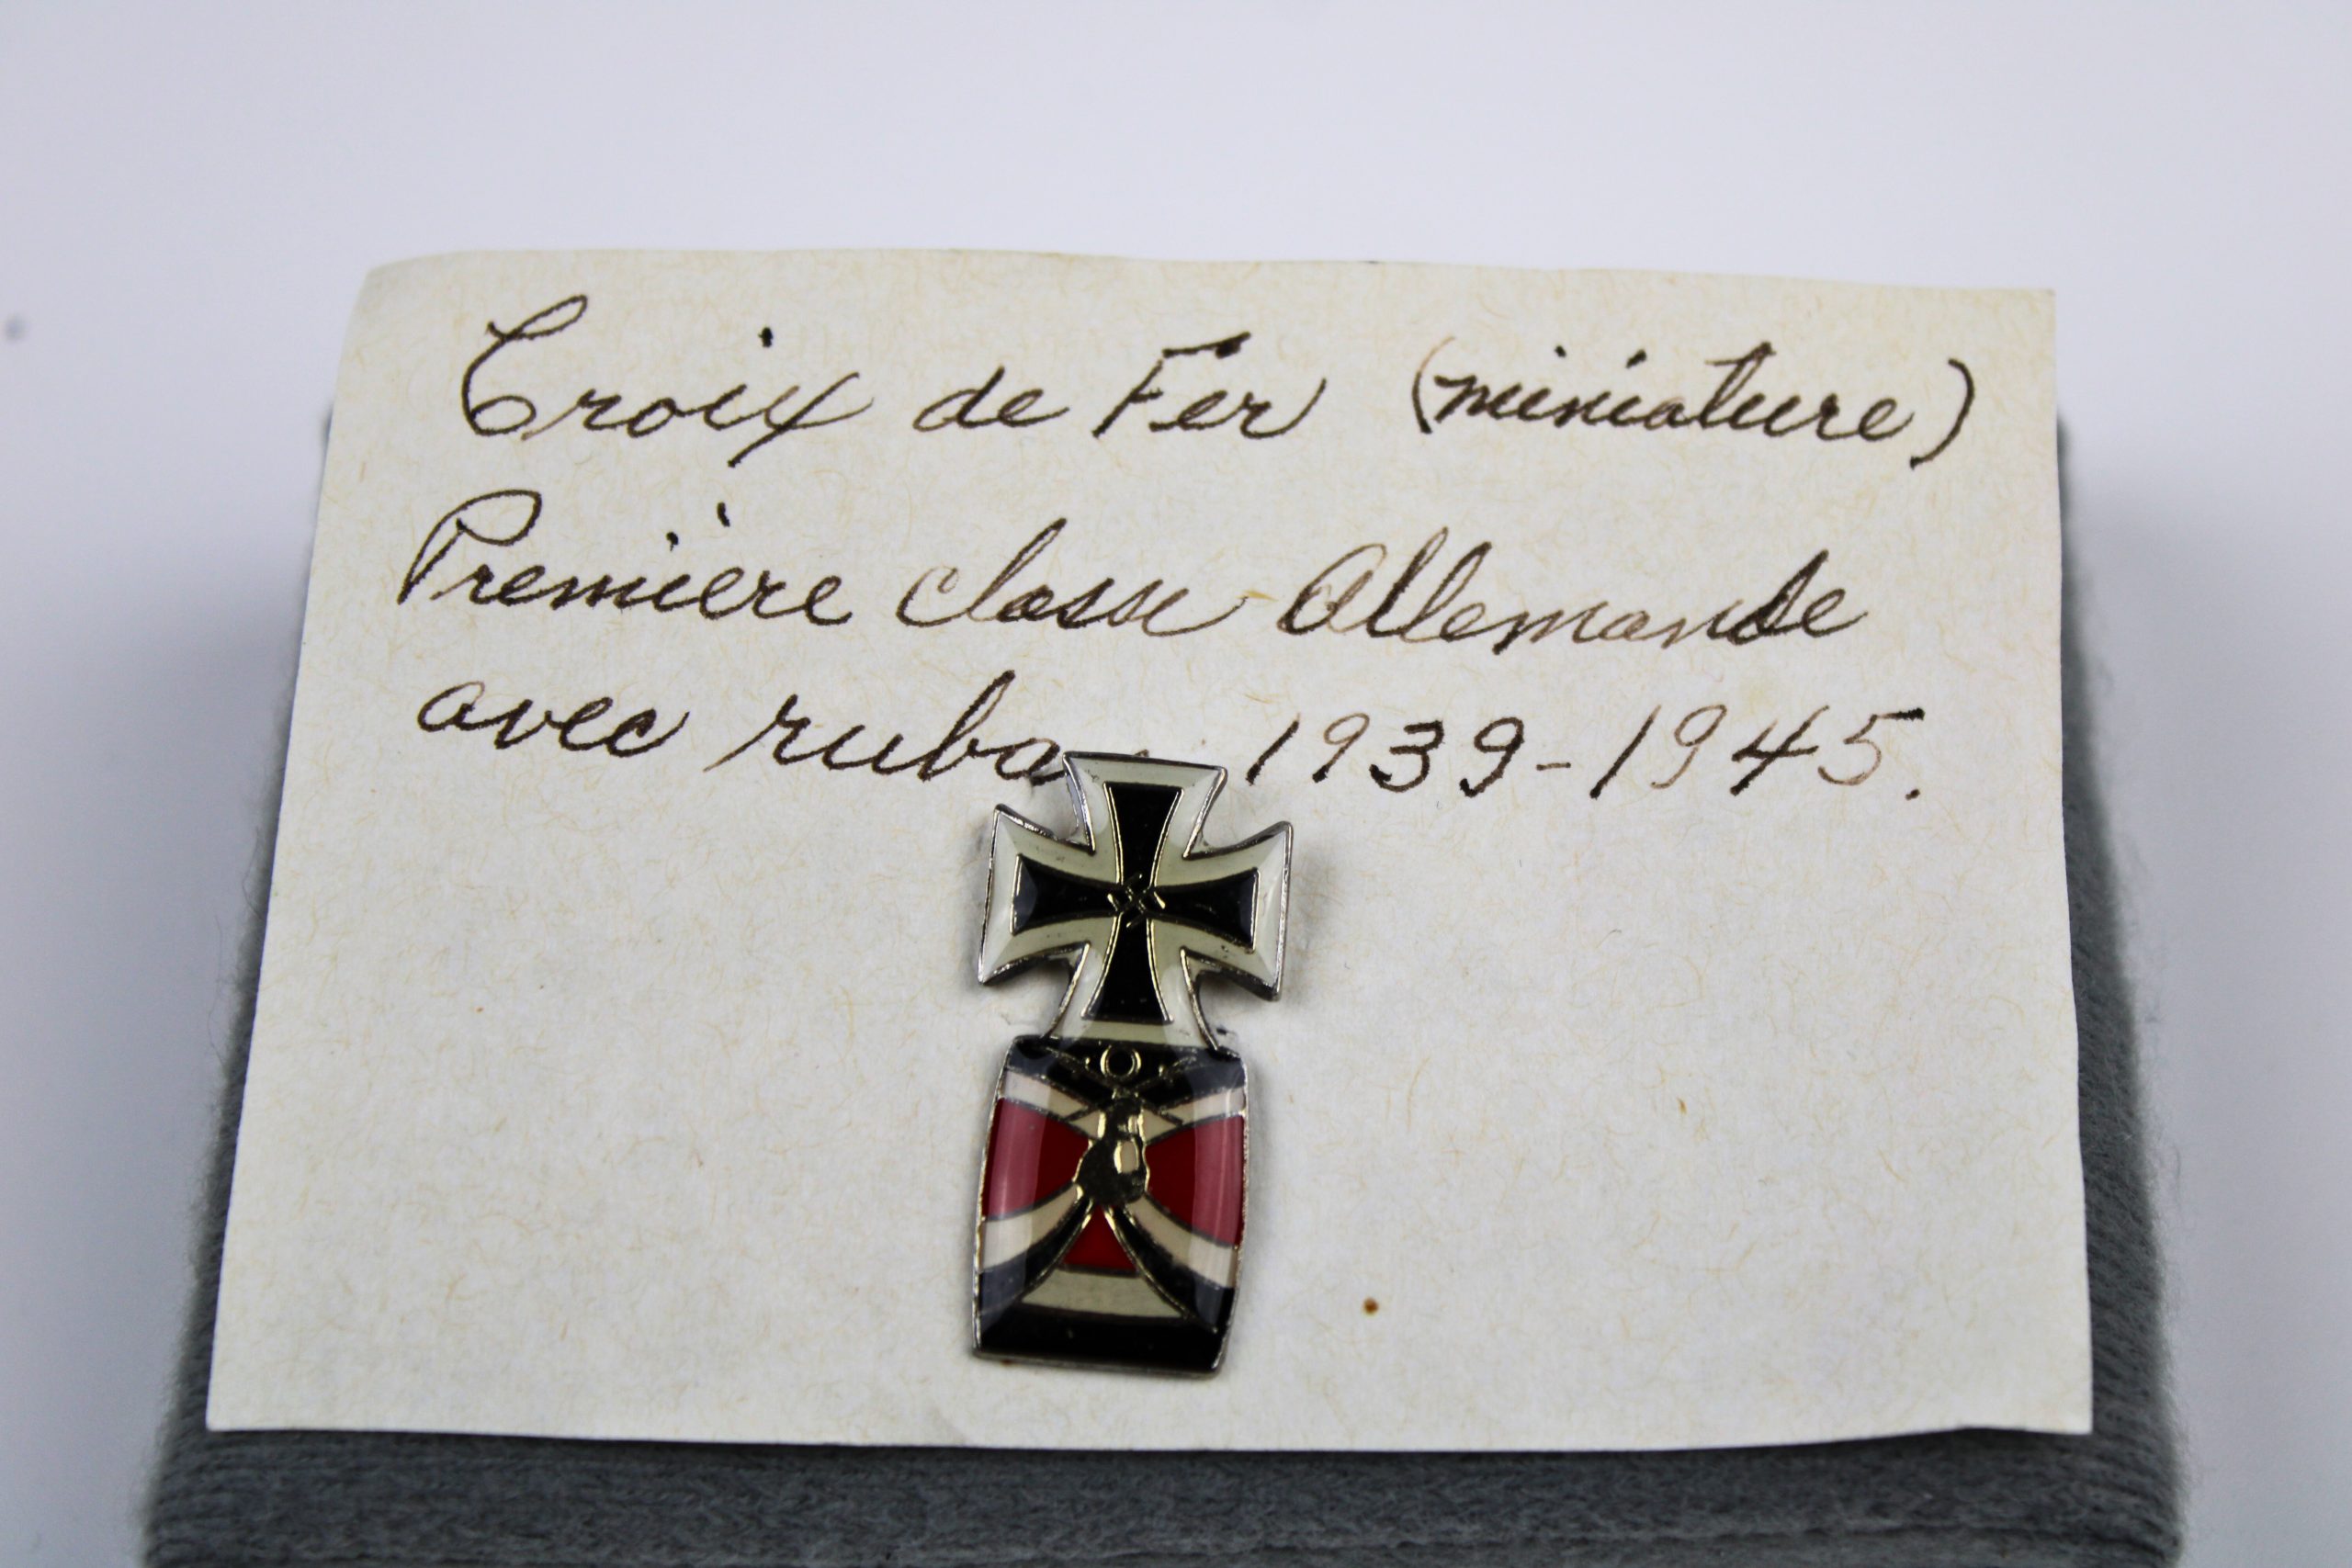 Croix de Fer (miniature)
Première classe Allemande
avec ruban 1939-1945.